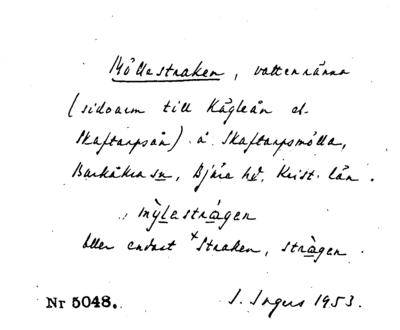 Möllestraken, vattenränna
(sidoarm till Kägleån el.
Skaftarpsån) å Skaftarpsmölla,
Barkåkra sn, Bjäre hd, Krist. län.
, mỳlestrágen
eller endast ˣStraken, strágen.
Nr 5048. S. Ingers 1953.